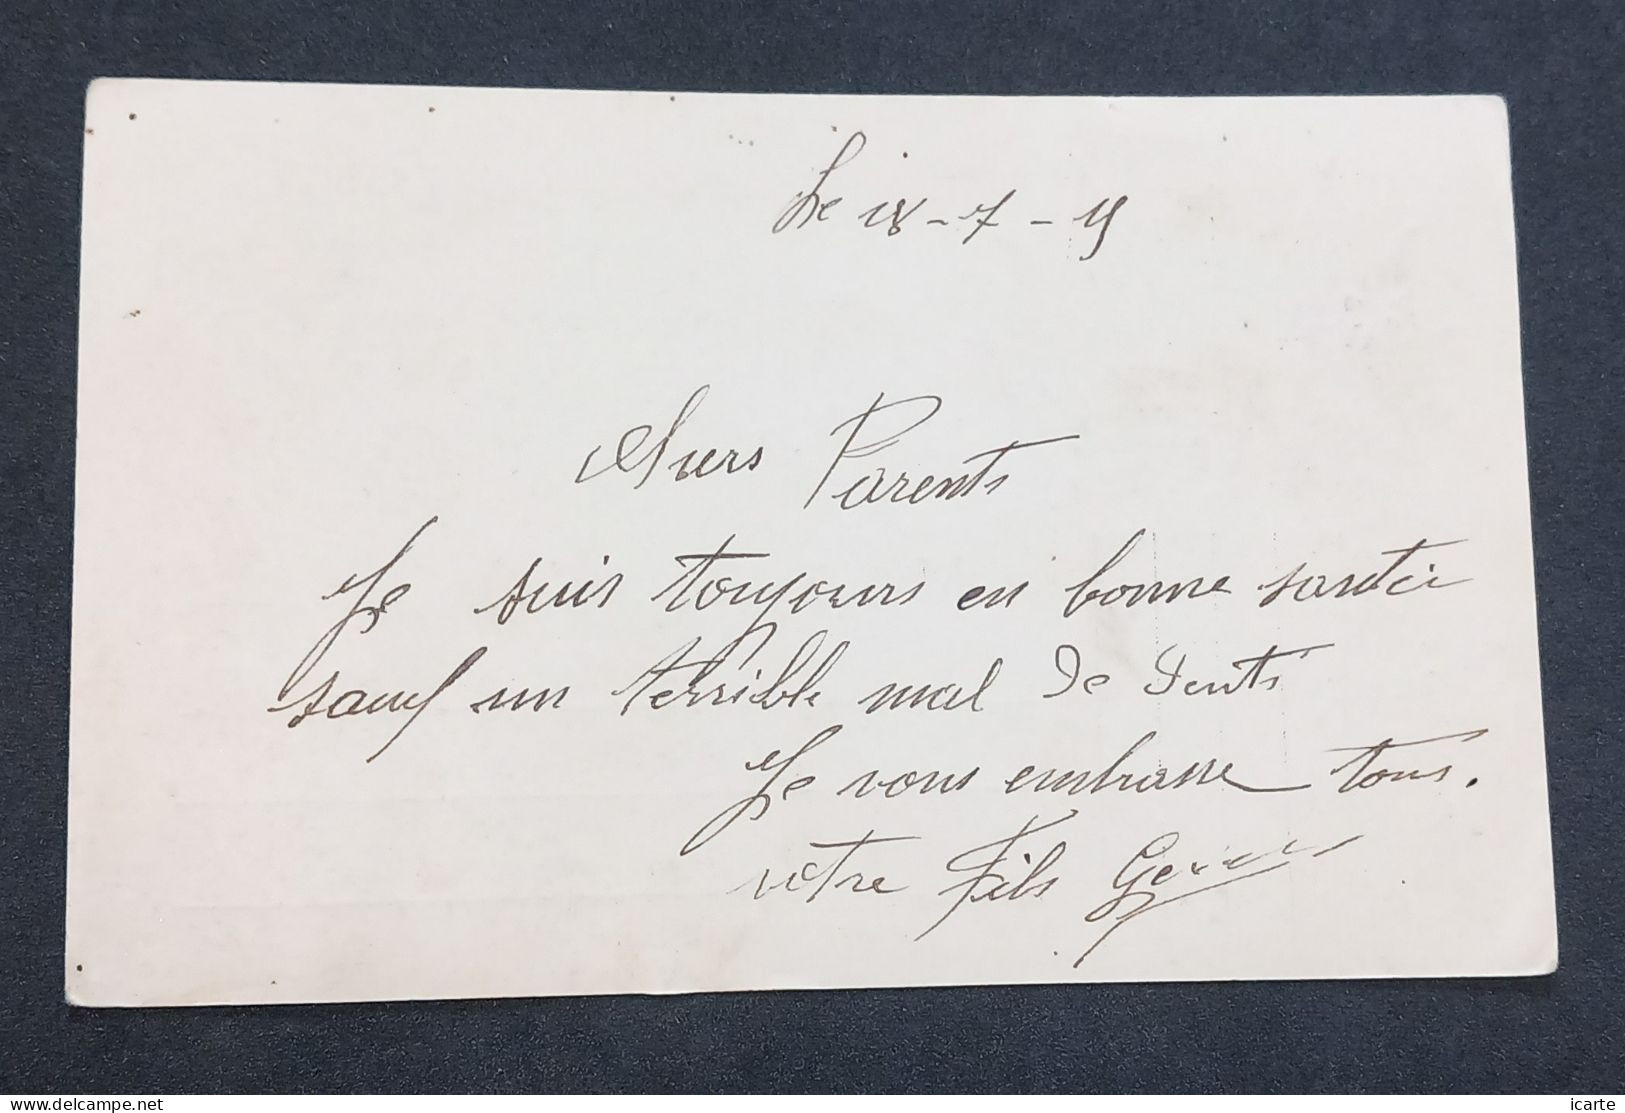 Le 18-7-15
Chers Parents
Je suis toujours en bonne santé
sauf un terrible mal de dents
Je vous embrasse tous.
votre Fils
website-timbres.delcampe.net
icarte